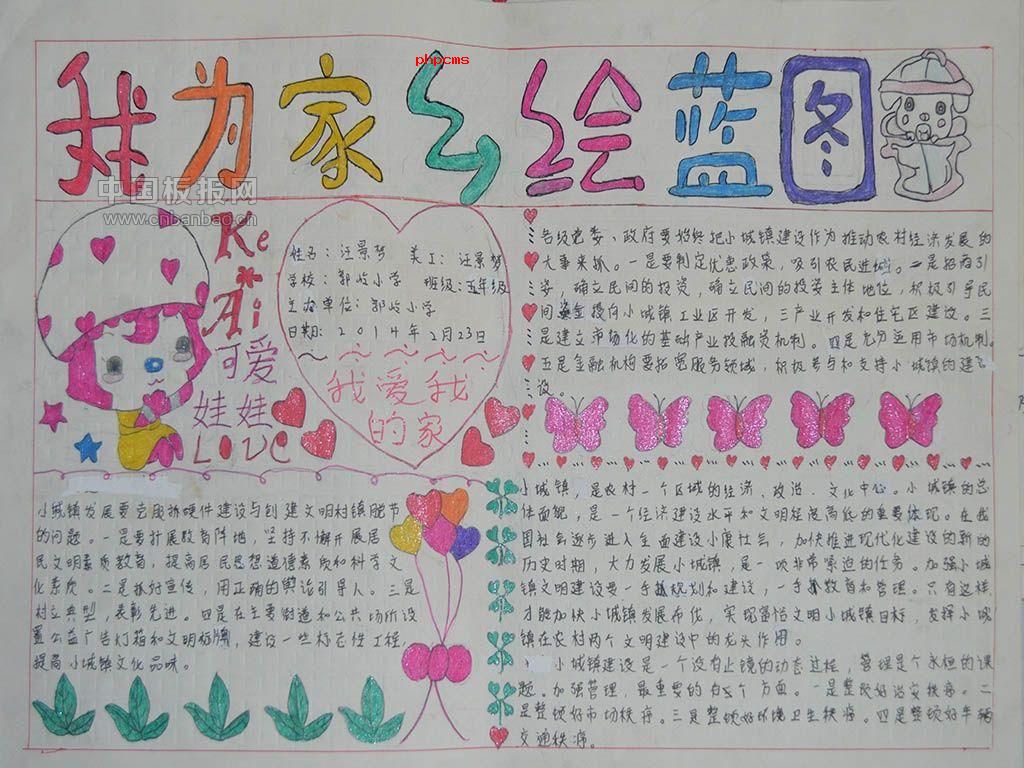 phpcms
我为家乡绘蓝图
中国板报网
www.cnbanbao.cn
Ke
Ai
可爱
娃娃
LOVE
姓名：汪景梦 美工：汪景梦
学校：郭岭小学 班级：五年级
主办单位：郭岭小学
日期：2014年2月23日
我爱我
的家
各级党委、政府要始终把小城镇建设作为推动农村经济发展的
大事来抓。一是要制定优惠政策，吸引农民进城。二是招商引
资，确立民间的投资，确立民间的投资主体地位，积极引导民
间资金投向小城镇工业区开发，三产业开发和住宅区建设。三
是建立市场化的基础产业投融资机制。四是充分运用市场机制。
五是金融机构要拓宽服务领域，积极参与和支持小城镇的建
设。
小城镇发展要克服抓硬件建设与创建文明村镇脱节
的问题。一是要扩展教育阵地，坚持不懈开展居
民文明素质教育，提高居民思想道德素质和科学文
化素质。二是抓好宣传，用正确的舆论引导人。三是
树立典型，表彰先进。四是在主要街道和公共场所设
置公益广告灯箱和文明标牌，建设一些标志性工程，
提高小城镇文化品味。
小城镇，是农村一个区域的经济、政治、文化中心。小城镇的总
体面貌，是一个经济建设水平和文明程度高低的重要体现。在我
国社会逐步进入全面建设小康社会，加快推进现代化建设的新的
历史时期，大力发展小城镇，是一项非常紧迫的任务。加强小城
镇文明建设要一手抓规划和建设，一手抓教育和管理。只有这样
才能加快小城镇发展布伐，实现富裕文明小城镇目标，发挥小城
镇在农村两个文明建设中的龙头作用。
小城镇建设是一个没有止境的动态过程，管理是个永恒的课
题。加强管理，最重要的有5个方面。一是整顿好治安秩序。二
是整顿好市场秩序。三是整顿好环境卫生秩序。四是整顿好车辆
交通秩序。